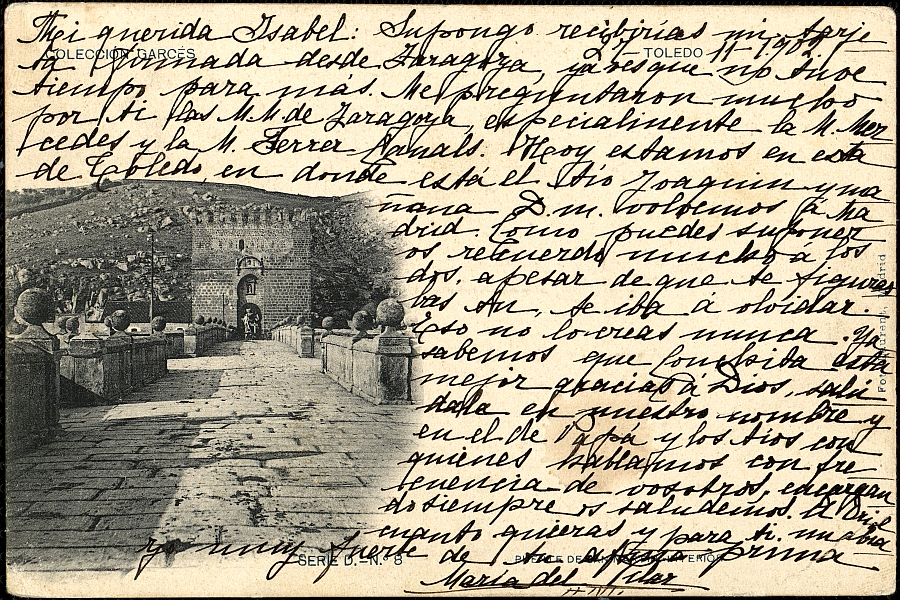 COLECCIÓN GARCÉS
TOLEDO
11-1909
Mi querida Isabel: Supongo recibirías mi tarje
ta firmada desde Zaragoza, ya ves que no tuve
tiempo para más. Me preguntaron mucho
por ti las M.M. de Zaragoza, especialmente la M. Mer
cedes y la M. Ferrer Canals. Hoy estamos en esta
de Toledo, en donde está el tío Joaquin y ma
ñana D. m. volvemos á Ma
drid. Como puedes suponer
os recuerdo mucho á los
dos, apesar de que te figura
bas tu, te iba á olvidar.
Eso no lo creas nunca. Ya
sabemos que Conchita está
mejor gracias á Dios, salú
dala en nuestro nombre y
en el de Papá y los tíos con
quienes hablamos con fre
cuencia de vosotros, encargan
do siempre os saludemos. A
cuanto quieras y para ti un abra
zo muy fuerte de tu prima
María del Pilar
SERIE D.-N.º 8
PUENTE DE SAN MARTÍN INTERIOR
Madrid